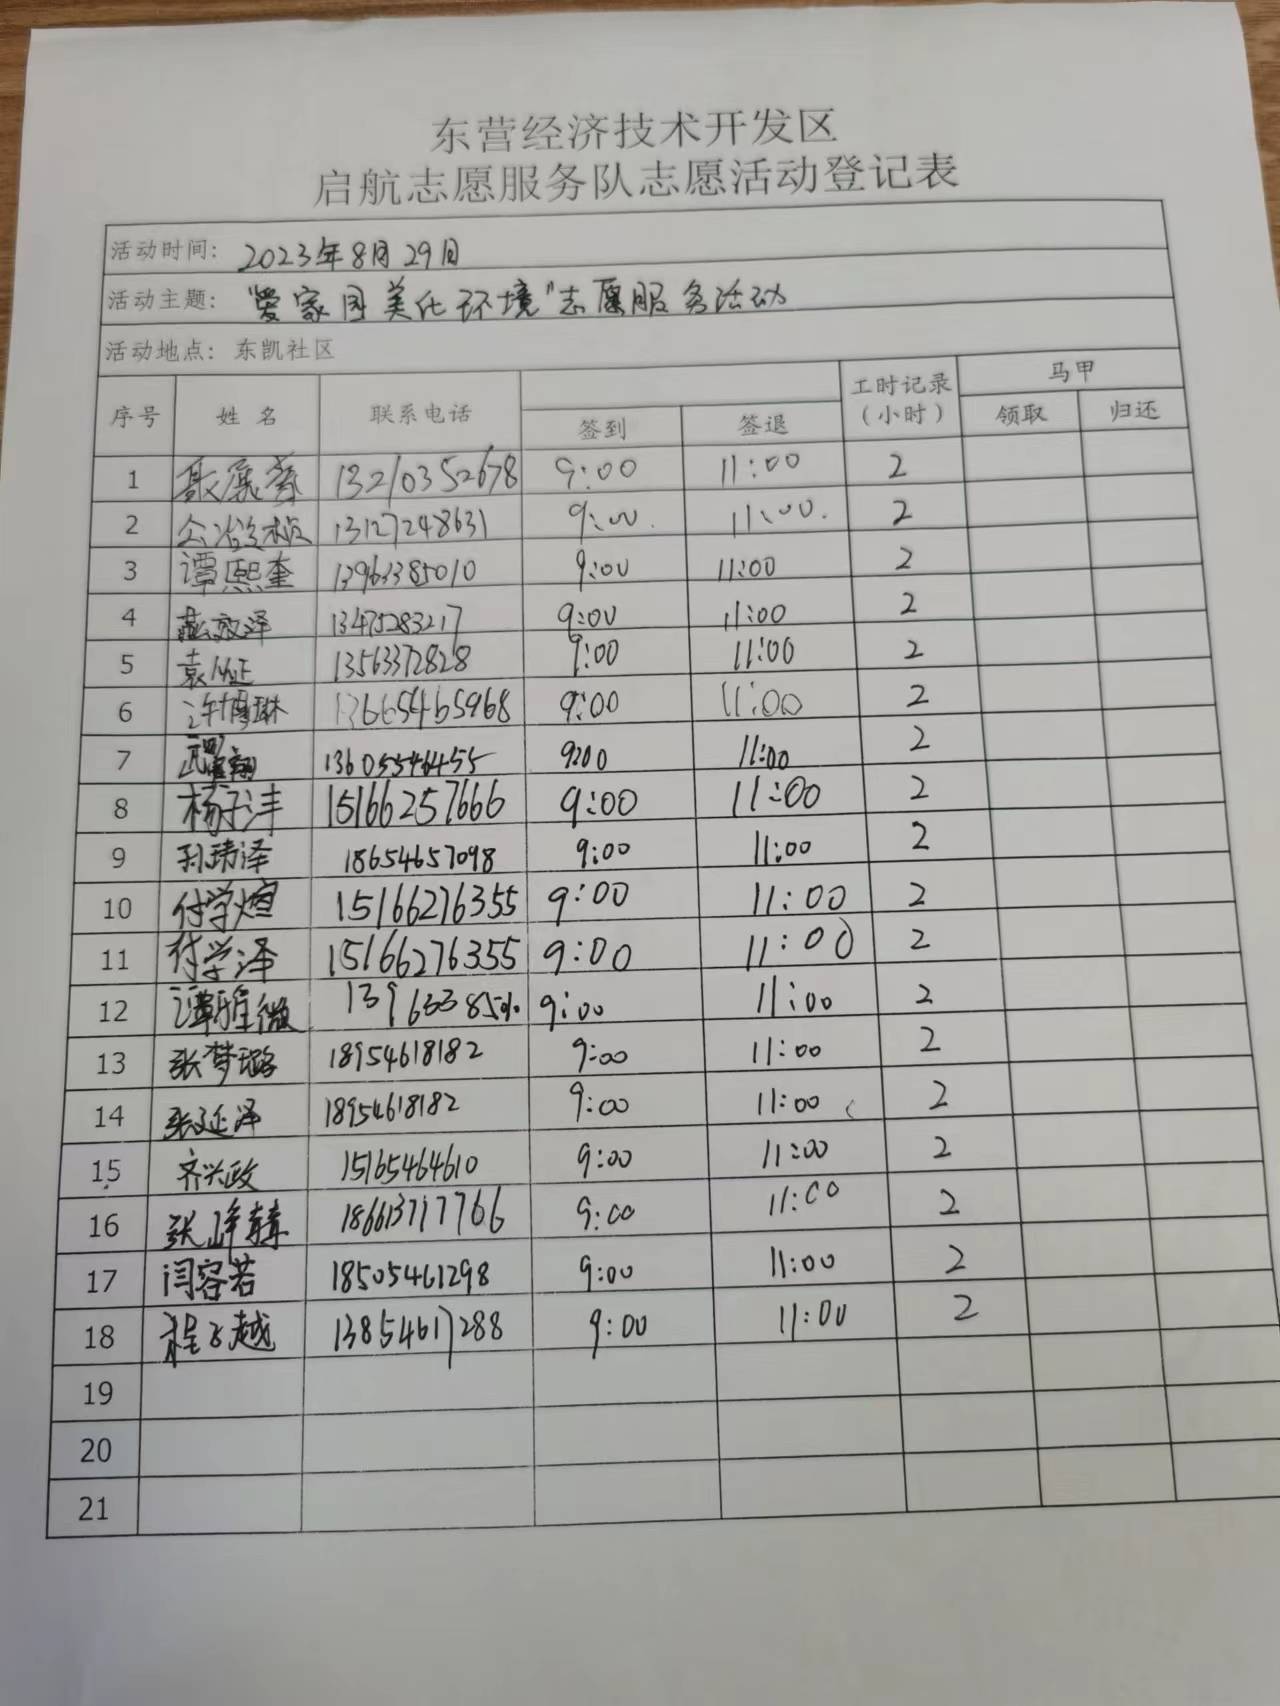 东营经济技术开发区
启航志愿服务队志愿活动登记表
活动时间: 2023年8月29日
活动主题: "爱家园美化环境"志愿服务活动
活动地点: 东凯社区
序号 姓名 联系电话 签到 签退 工时记录(小时) 马甲 领取 归还
1 13210352678 9:00 11:00 2
2 13127248631 9:00. 11:00. 2
3 谭熙奎 13963385010 9:00 11:00 2
4 13475283217 9:00 11:00 2
5 13563372828 9:00 11:00 2
6 许博琳 13665465968 9:00 11:00 2
7 13605546455 9:00 11:00 2
8 杨子沣 15166257666 9:00 11:00 2
9 孙玮泽 18654657098 9:00 11:00 2
10 付学煊 15166276355 9:00 11:00 2
11 付学泽 15166276355 9:00 11:00 2
12 谭雅微 9:00 11:00 2
13 张梦璐 18954618182 9:00 11:00 2
14 张延泽 18954618182 9:00 11:00 2
15 齐兴政 15165464610 9:00 11:00 2
16 张峰 18661371766 9:00 11:00 2
17 闫容若 18505461298 9:00 11:00 2
18 程飞越 13854617288 9:00 11:00 2
19
20
21